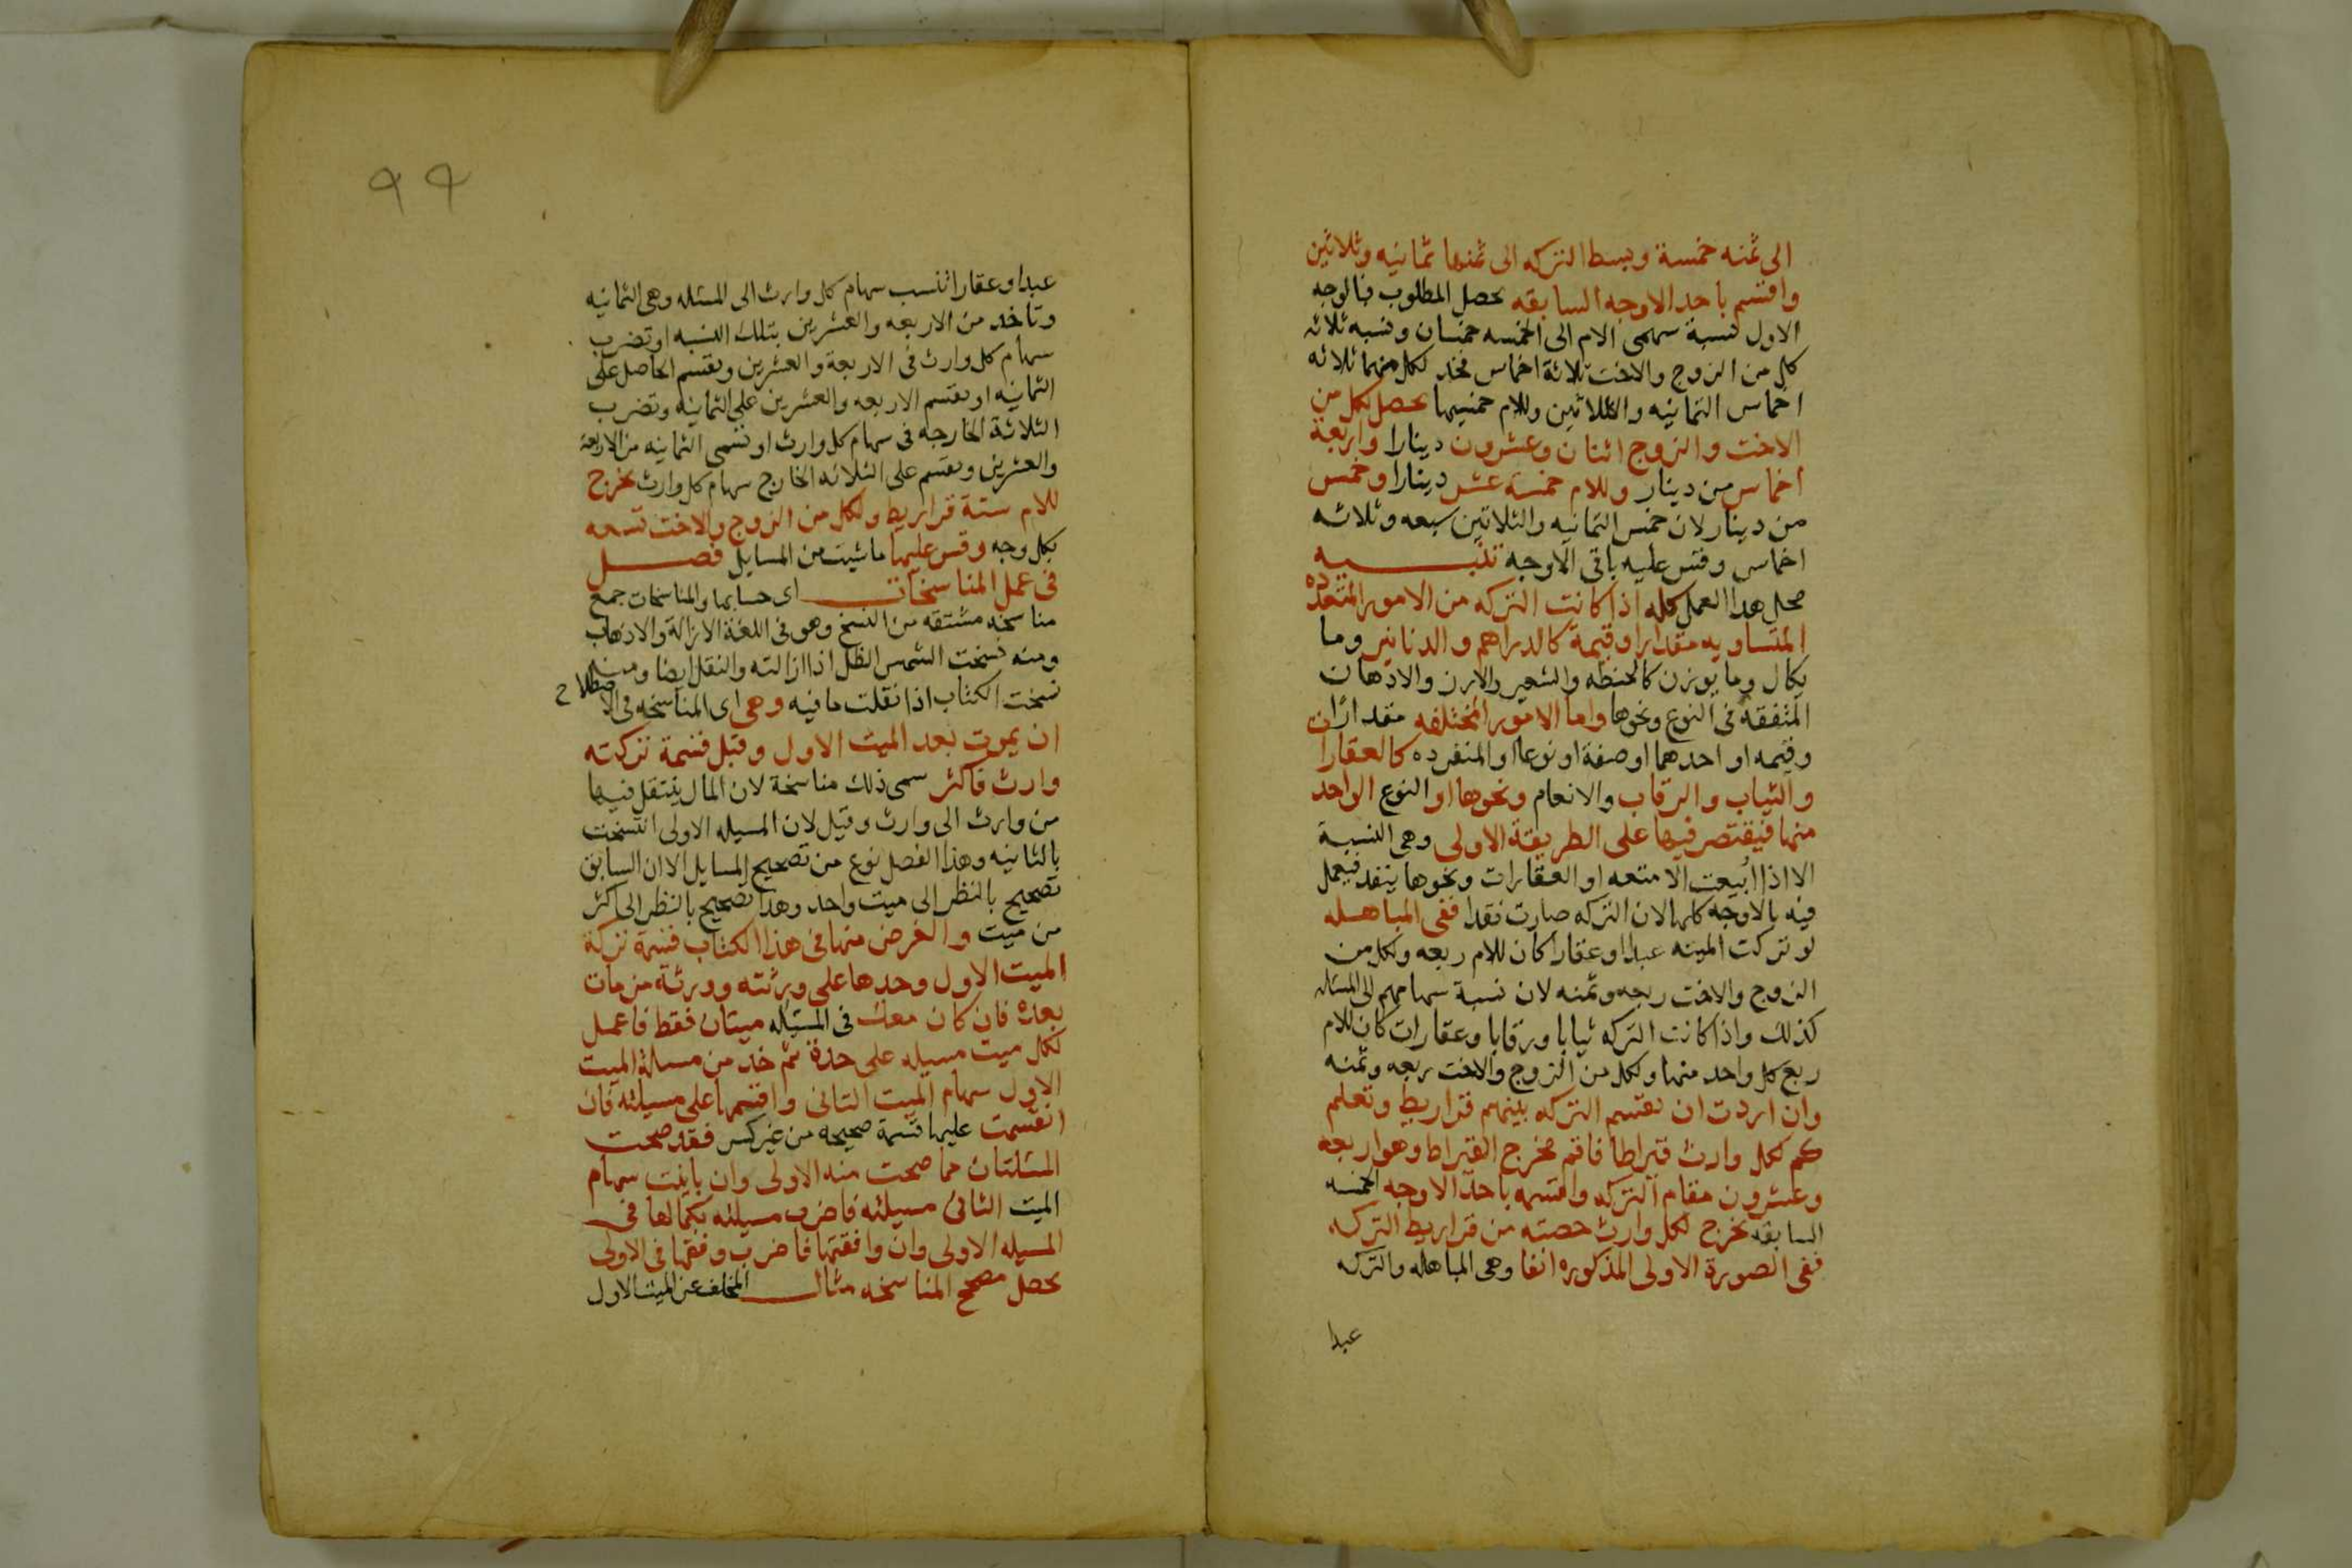 الى ثمنه خمسة وبسط التركه الى ثمنها ثمانيه وثلاثين
واقسم باحد الاوجه السابقه يحصل المطلوب فبالوجه
الاول نسبة سهمى الام الى الخمسه خمسان ونسبه ثلاثه
كل من الزوج والاخت ثلاثة اخماس فخذ لكل منهما ثلاثه
اخماس الثمانيه والثلاثين وللام خمسيها يحصل لكل من
الاخت والزوج اثنان وعشرون دينارا واربعة
اخماس من دينار وللام خمسة عشر دينارا وخمس
من دينار لان خمس الثمانيه والثلاثين سبعه وثلاثه
اخماس وقس عليه باقى الاوجه تنبيه
محل هذا العمل كله اذا كانت التركه من الامور المتعدده
المتساويه مقدارا وقيمة كالدراهم والدنانير وما
يكال وما يوزن كالحنطه والشعير والارز والادهان
المتفقه فى النوع ونحوها واما الامور المختلفه مقدارا
وقيمه او احدهما او صفة او نوعا او المنفرده كالعقارات
والثياب والرقاب والانعام ونحوها او النوع الواحد
منها فيقتصر فيها على الطريقة الاولى وهى النسبة
الا اذا ابيعت الامتعه او العقارات ونحوها بنقد فيعمل
فيه بالاوجه كلها لان التركه صارت نقدا ففى المباهله
لو تركت الميته عبدا او عقارا كان للام ربعه ولكل من
الزوج والاخت ربعه وثمنه لان نسبة سهامهم الى المسئله
كذلك واذا كانت التركه ثيابا ورقابا وعقارات كان للام
ربع كل واحد منها ولكل من الزوج والاخت ربعه وثمنه
وان اردت ان تقسم التركه بينهم قراريط وتعلم
كم لكل وارث قيراطا فاقم مخرج القيراط وهو اربعه
وعشرون مقام التركه واقسمه باحد الاوجه الخمسه
السابقه يخرج لكل وارث حصته من قراريط التركه
ففى الصورة الاولى المذكوره انفا وهى المباهله والتركه
عبدا
٩٩
عبدا وعقارا تنسب سهام كل وارث الى المسئله وهى الثمانيه
وتاخذ من الاربعه والعشرين بتلك النسبه او تضرب
سهام كل وارث فى الاربعة والعشرين وتقسم الحاصل على
الثمانيه او تقسم الاربعه والعشرين على الثمانيه وتضرب
الثلاثة الخارجه فى سهام كل وارث او تسمى الثمانيه من الاربعة
والعشرين وتقسم على الثلاثه الخارج سهام كل وارث يخرج
للام ستة قراريط ولكل من الزوج والاخت تسعه
بكل وجه وقس عليها ما شيت من المسايل فصل
فى عمل المناسخات اى حسابها والمناسخات جمع
مناسخه مشتقه من النسخ وهو فى اللغة الازالة والاذهاب
ومنه نسخت الشمس الظل اذا ازالته والنقل ايضا ومنه
نسخت الكتاب اذا نقلت ما فيه وهى اى المناسخه فى الاصطلاح
ان يموت بعد الميت الاول وقبل قسمة تركته
وارث فاكثر سمى ذلك مناسخة لان المال ينتقل فيها
من وارث الى وارث وقيل لان المسيله الاولى انتسخت
بالثانيه وهذا الفصل نوع من تصحيح المسايل الا ان السابق
تصحيح بالنظر الى ميت واحد وهذا تصحيح بالنظر الى اكثر
من ميت والغرض منها فى هذا الكتاب قسمة تركة
الميت الاول وحدها على ورثته وورثة من مات
بعده فان كان معك فى المسئله ميتان فقط فاعمل
لكل ميت مسيله على حدة ثم خذ من مسالة الميت
الاول سهام الميت الثانى واقسمها على مسيلته فان
انقسمت عليها قسمة صحيحه من غير كسر فقد صحت
المسئلتان مما صحت منه الاولى وان باينت سهام
الميت الثانى مسيلته فاضرب مسيلته بكمالها فى
المسيله الاولى وان وافقتها فاضرب وفقها فى الاولى
يحصل مصحح المناسخه مثال المخلف عن الميت الاول